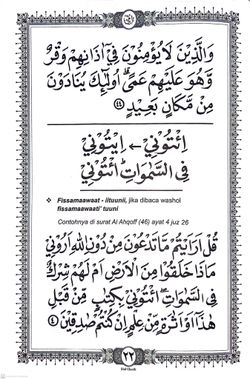 وَالَّذِيْنَ لَا يُؤْمِنُوْنَ فِيْٓ اٰذَانِهِمْ وَقْرٌ
وَّهُوَ عَلَيْهِمْ عَمًىۗ اُولٰۤىِٕكَ يُنَادَوْنَ
مِنْ مَّكَانٍۢ بَعِيْدٍ ࣖ ٤٤
اِئْتُوْنِيْ ← اِيْتُوْنِيْ
فِى السَّمٰوٰتِ ائْتُوْنِيْ
❖ Fissamaawaat - iituunii, jika dibaca washol
fissamaawaati' tuuni
Contohnya di surat Al Ahqoff (46) ayat 4 juz 26
قُلْ اَرَءَيْتُمْ مَّا تَدْعُوْنَ مِنْ دُوْنِ اللّٰهِ اَرُوْنِيْ
مَاذَا خَلَقُوْا مِنَ الْاَرْضِ اَمْ لَهُمْ شِرْكٌ
فِى السَّمٰوٰتِۗ ائْتُوْنِيْ بِكِتٰبٍ مِّنْ قَبْلِ
هٰذَآ اَوْ اَثٰرَةٍ مِّنْ عِلْمٍ اِنْ كُنْتُمْ صٰدِقِيْنَ ٤
٢٢